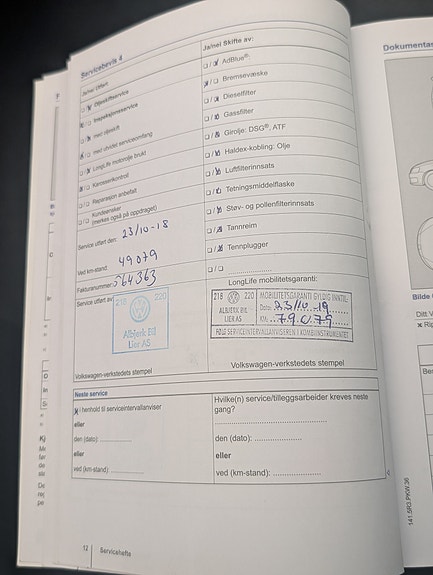 Servicebevis 4
Ja/nei Utført:
Oljeskiftservice
Inspeksjonsservice
med oljeskift
med utvidet serviceomfang
LongLife motorolje brukt
Karosserikontroll
Reparasjon anbefalt
Kundeønsker
(merkes også på oppdraget)
Service utført den: 23/10-18
Ved km-stand: 49079
Fakturanummer: 564363
Service utført av:
218 220
Albjerk Bil
Lier AS
Volkswagen-verkstedets stempel
Ja/nei Skifte av:
AdBlue®:
Bremsevæske
Dieselfilter
Gassfilter
Girolje: DSG®, ATF
Haldex-kobling: Olje
Luftfilterinnsats
Tetningsmiddelflaske
Støv- og pollenfilterinnsats
Tannreim
Tennplugger
LongLife mobilitetsgaranti:
218 220
ALBJERK BIL
LIER AS
MOBILITETSGARANTI GYLDIG INNTIL:
Dato: 23/10-19
KM: 79.079
FØLG SERVICEINTERVALLANVISEREN I KOMBIINSTRUMENTET
Volkswagen-verkstedets stempel
Neste service
i henhold til serviceintervallanviser
eller
den (dato):
eller
ved (km-stand):
Hvilke(n) service/tilleggsarbeider kreves neste
gang?
den (dato):
eller
ved (km-stand):
12 Servicehefte
Bilde
Ditt V
141.5R3.PKW.36